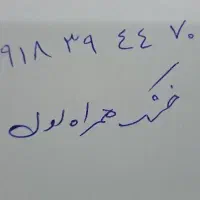 ۹۱۸ ۳۹ ۴۴ ۷۰
خشک همراه اول